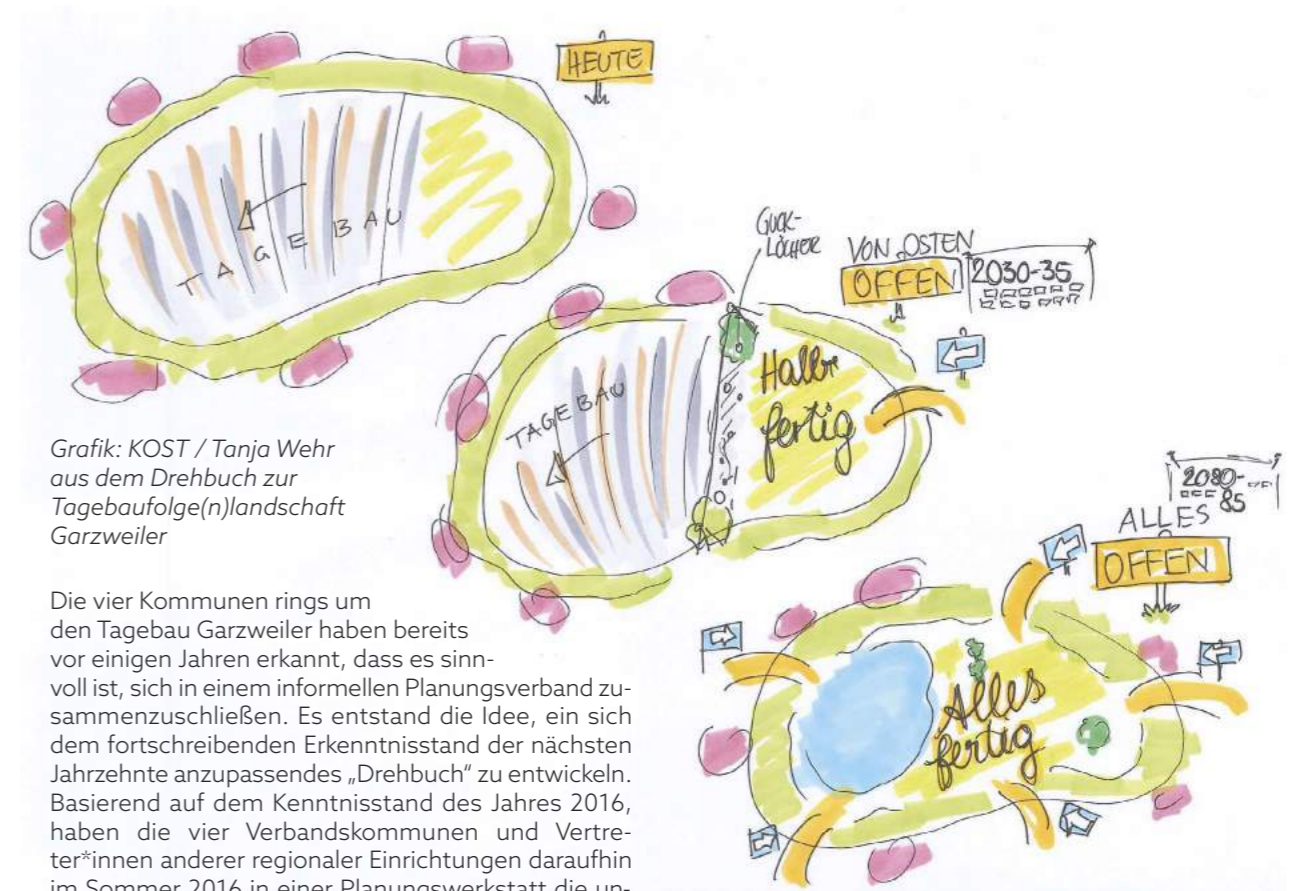 HEUTE
TAGEBAU
GUCK-
LÖCHER
VON OSTEN
OFFEN
2030-35
TAGEBAU
Halb
fertig
2080-
85
ALLES
OFFEN
Alles
fertig
Grafik: KOST / Tanja Wehr
aus dem Drehbuch zur
Tagebaufolge(n)landschaft
Garzweiler
Die vier Kommunen rings um
den Tagebau Garzweiler haben bereits
vor einigen Jahren erkannt, dass es sinn-
voll ist, sich in einem informellen Planungsverband zu-
sammenzuschließen. Es entstand die Idee, ein sich
dem fortschreibenden Erkenntnisstand der nächsten
Jahrzehnte anzupassendes „Drehbuch“ zu entwickeln.
Basierend auf dem Kenntnisstand des Jahres 2016,
haben die vier Verbandskommunen und Vertre-
ter*innen anderer regionaler Einrichtungen daraufhin
im Sommer 2016 in einer Planungswerkstatt die un-